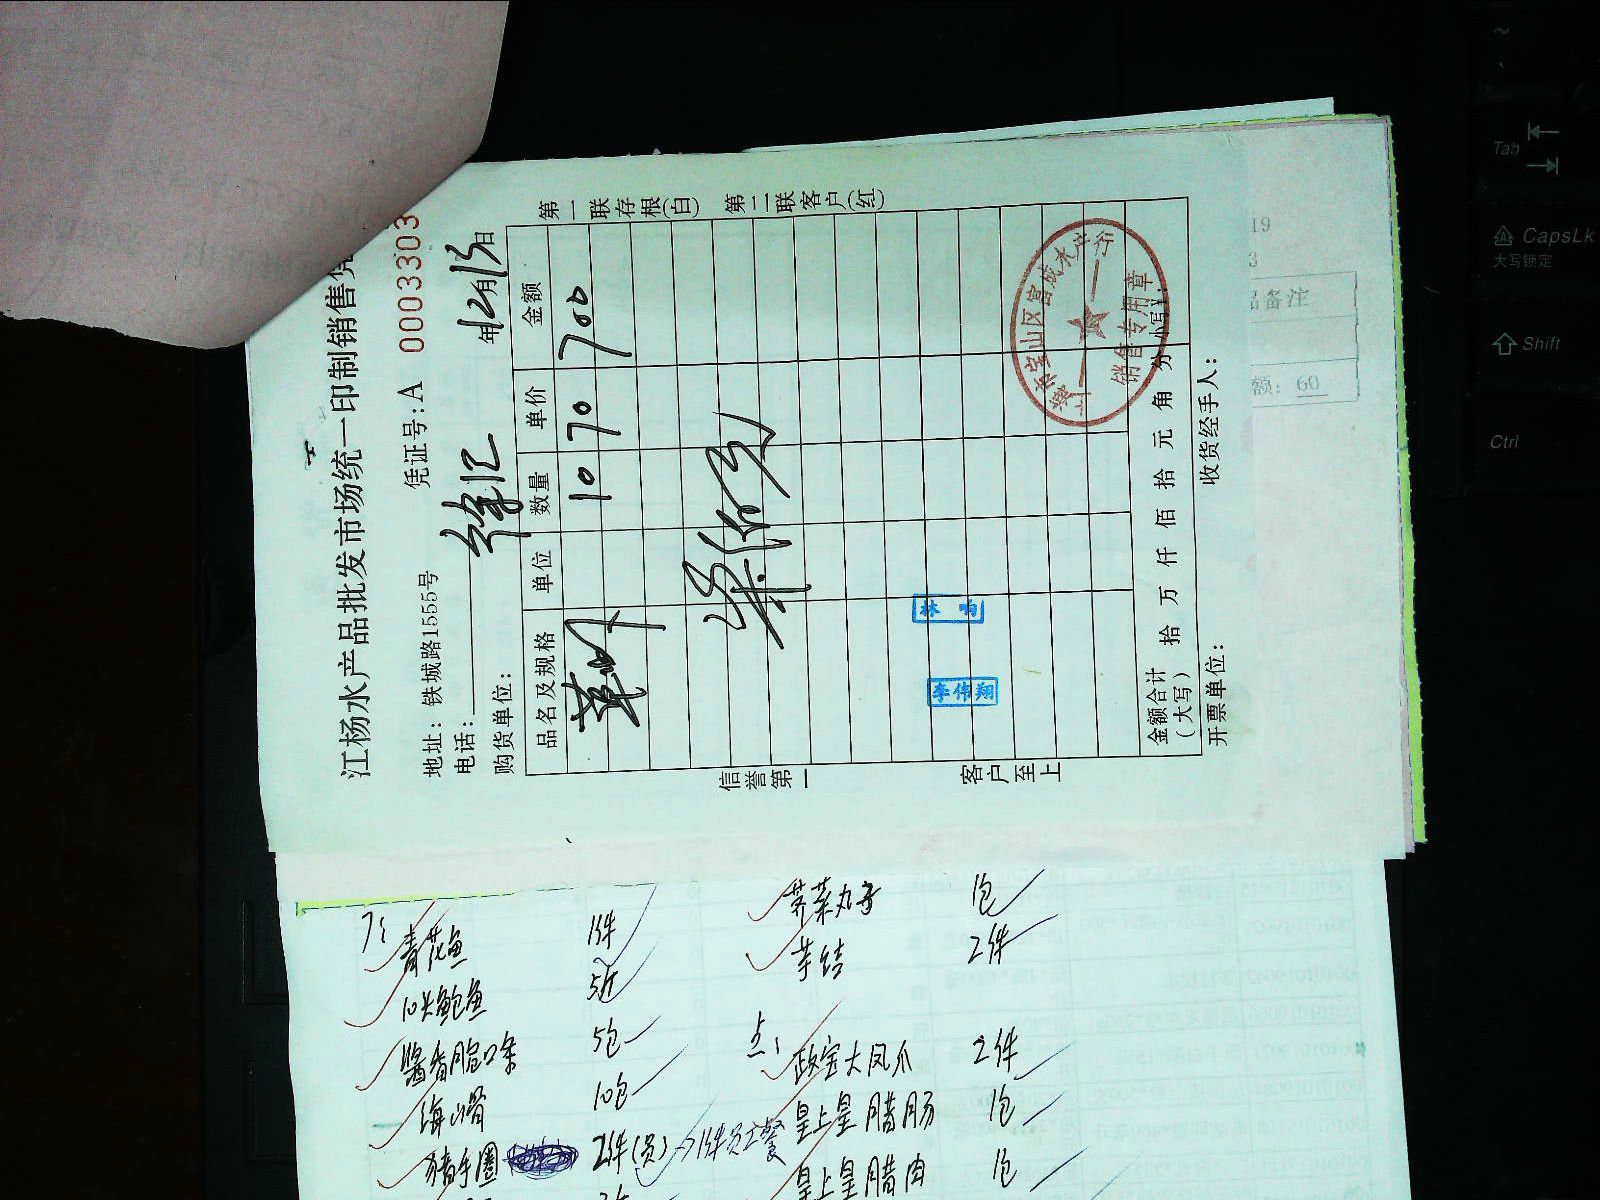 江杨水产品批发市场统一印制销售凭
凭证号:A 0003303
地址:铁城路1555号
电话:
年12月13日
购货单位: 徐汇
品名及规格 单位 数量 单价 金额
10 70 700
第一联存根(白) 第二联客户(红)
信誉第一 客户至上
林 鸣
李伟翔
宝山区富成水产行
销售专用章
金额合计(大写) 拾 万 仟 佰 拾 元 角 分 小写:
开票单位: 收货经手人:
19
3
品备注
额: 60
青花鱼 1件
10头鲍鱼 5斤
酱香脆口条 5包
10包
猪手圈 2件(员)→1件员工餐
荠菜丸子 1包
芋结 2件
点:
大凤爪 2件
皇上皇腊肠 1包
皇上皇腊肉 1包
~
Tab
CapsLk
大写锁定
Shift
Ctrl